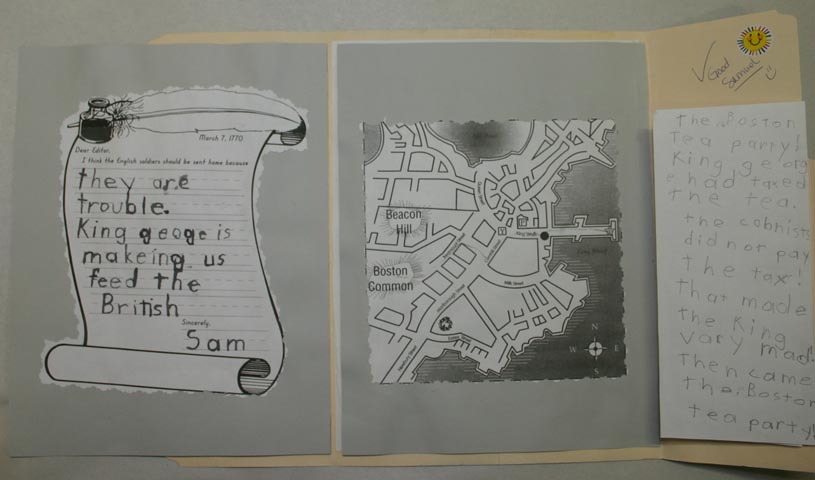 March 7, 1770
Dear Editor,
I think the English soldiers should be sent home because
they are
trouble.
King geoge is
makeing us
feed the
British
Sincerely,
Sam
Beacon
Hill
Boston
Common
N
W E
S
Good
Samuel
the Boston
Tea party!
King georg
e had taxed
the tea.
the colnists
did not pay
the tax!
that made
the King
vary mad.
then came
the Boston
tea party!